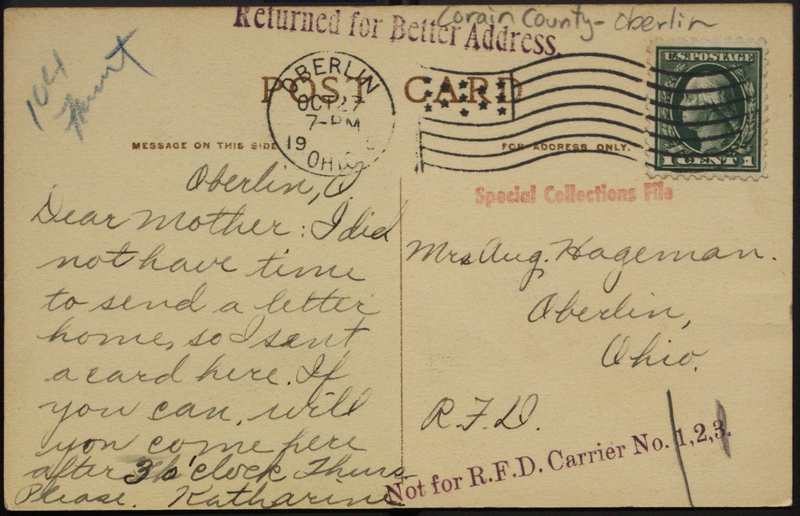 Returned for Better Address.
Lorain County - Oberlin
104
POST CARD
OBERLIN
OCT 27
7-PM
19
OHIO
U.S. POSTAGE
1 CENT 1
MESSAGE ON THIS SIDE
FOR ADDRESS ONLY.
Special Collections File
Oberlin, O
Dear Mother: I did
not have time
to send a letter
home, so I sent
a card here. If
you can, will
you come here
after 3 o'clock Thurs
Please. Katharine
Mrs Aug. Hageman.
Oberlin,
Ohio.
R.F.D.
Not for R.F.D. Carrier No. 1,2,3.